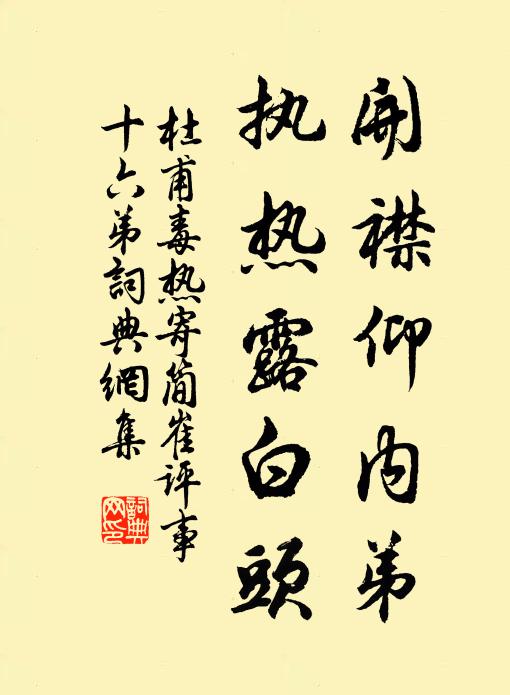 開襟仰内弟
执热露白頭
杜甫毒热寄简崔评事
十六弟詞典網集
詞典
网印